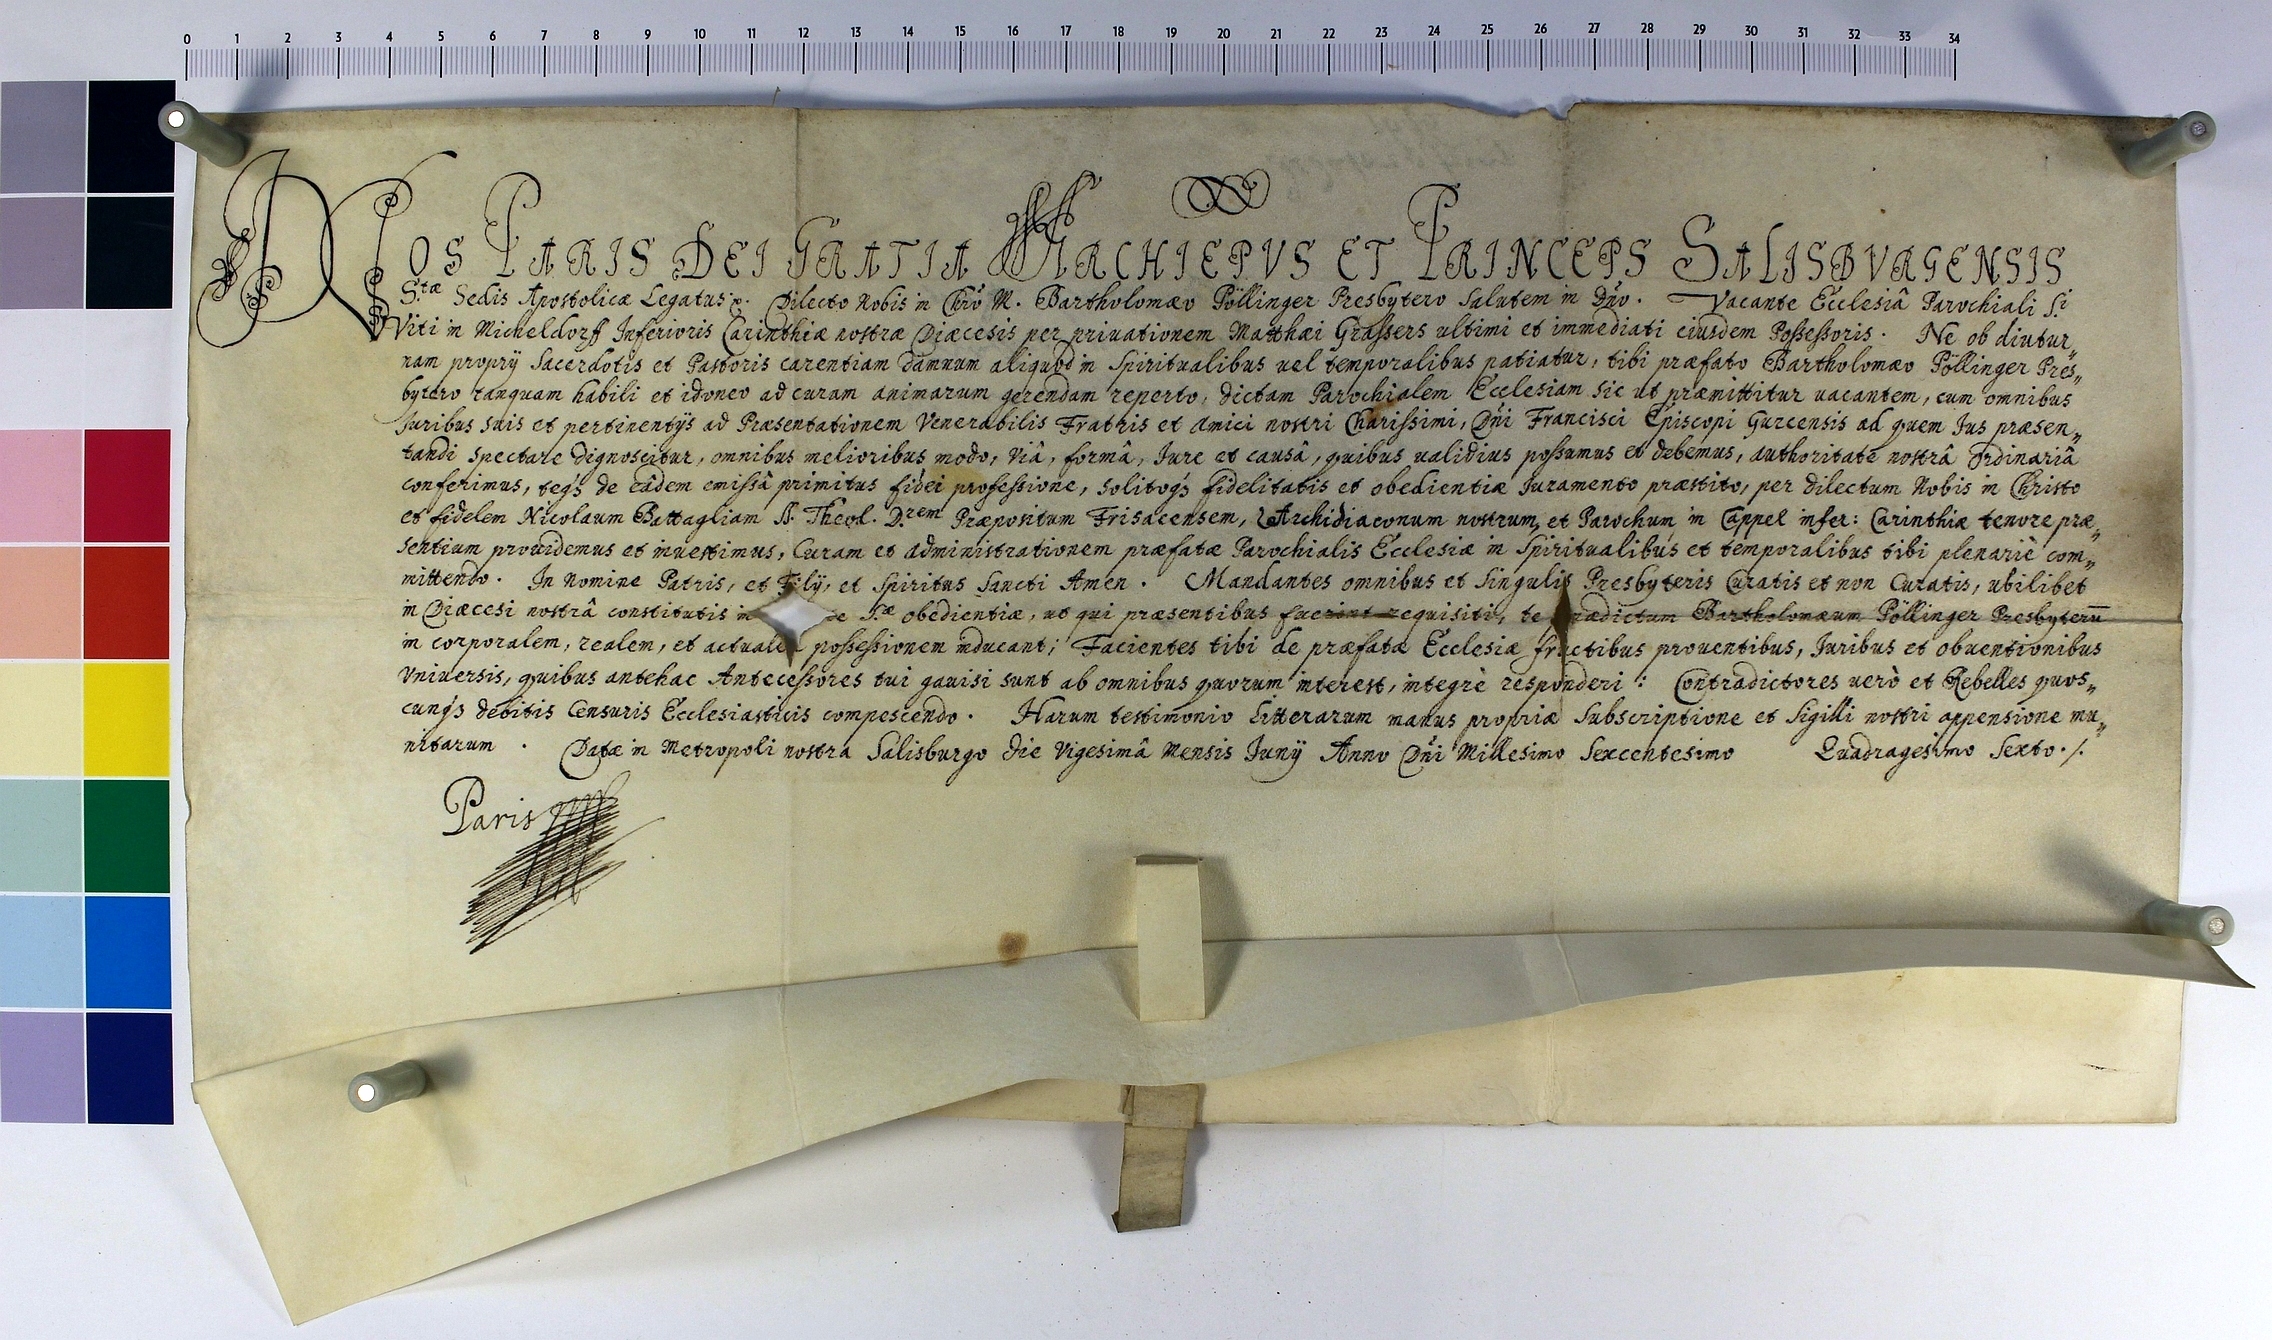 0 1 2 3 4 5 6 7 8 9 10 11 12 13 14 15 16 17 18 19 20 21 22 23 24 25 26 27 28 29 30 31 32 33 34
NOS PARIS DEI GRATIA ARCHIEPVS ET PRINCEPS SALISBVRGENSIS
S.tæ Sedis Apostolicæ Legatus. Dilecto Nobis in Chrõ M. Bartholomæo Pöllinger Presbytero Salutem in Dño. Vacante Ecclesiâ Parochiali S.i
Viti in Micheldorff Inferioris Carinthiæ nostræ Diæcesis per priuationem Matthæi Grassers ultimi et immediati eiusdem Possessoris. Ne ob diutur„
nam proprÿ Sacerdotis et Pastoris carentiam damnum aliquod in Spiritualibus uel temporalibus patiatur, tibi præfato Bartholomæo Pöllinger Pres„
bytero tanquam habili et idoneo ad curam animarum gerendam reperto, dictam Parochialem Ecclesiam sic ut præmittitur uacantem, cum omnibus
Juribus suis et pertinentÿs ad Præsentationem Venerabilis Fratris et Amici nostri Charissimi, Dñi Francisci Episcopi Gurcensis ad quem Jus præsen„
tandi spectare dignoscitur, omnibus melioribus modo, viâ, formâ, Jure et causâ, quibus ualidius possumus et debemus, authoritate nostrâ Ordinariâ
conferimus, teqs de eâdem emissâ primitus fidei professione, solitoqs fidelitatis et obedientiæ Juramento præstito, per dilectum Nobis in Christo
et fidelem Nicolaum Battagliam S. Theol. D.rem Præpositum Frisacensem, Archidiaconum nostrum, et Parochum in Cappel infer: Carinthiæ tenore præ„
sentium prouidemus et inuestimus, Curam et administrationem præfatæ Parochialis Ecclesiæ in Spiritualibus et temporalibus tibi plenariè com„
mittendo. In Nomine Patris, et Filÿ, et Spiritus Sancti Amen. Mandantes omnibus et singulis Presbyteris Curatis et non Curatis, ubilibet
in Diæcesi nostrâ constitutis in S.tæ obedientiæ, ut qui præsentibus fuerint requisiti, te rædictum Bartholomæum Pöllinger Presbyterũ
in corporalem, realem, et actualem possessionem inducant; Facientes tibi de præfatæ Ecclesiæ fructibus prouentibus, Juribus et obuentionibus
Vniuersis, quibus antehac Antecessores tui gauisi sunt ab omnibus quorum interest, integrè responderi: Contradictores uerò et Rebelles quos„
cunqs debitis Censuris Ecclesiasticis compescendo. Harum testimonio Litterarum manus propriæ Subscriptione et Sigilli nostri appensione mu„
nitarum. Datæ in Metropoli nostra Salisburgo die Vigesimâ Mensis Junÿ Anno Dñi Millesimo Sexcentesimo Quadragesimo Sexto./.
Paris